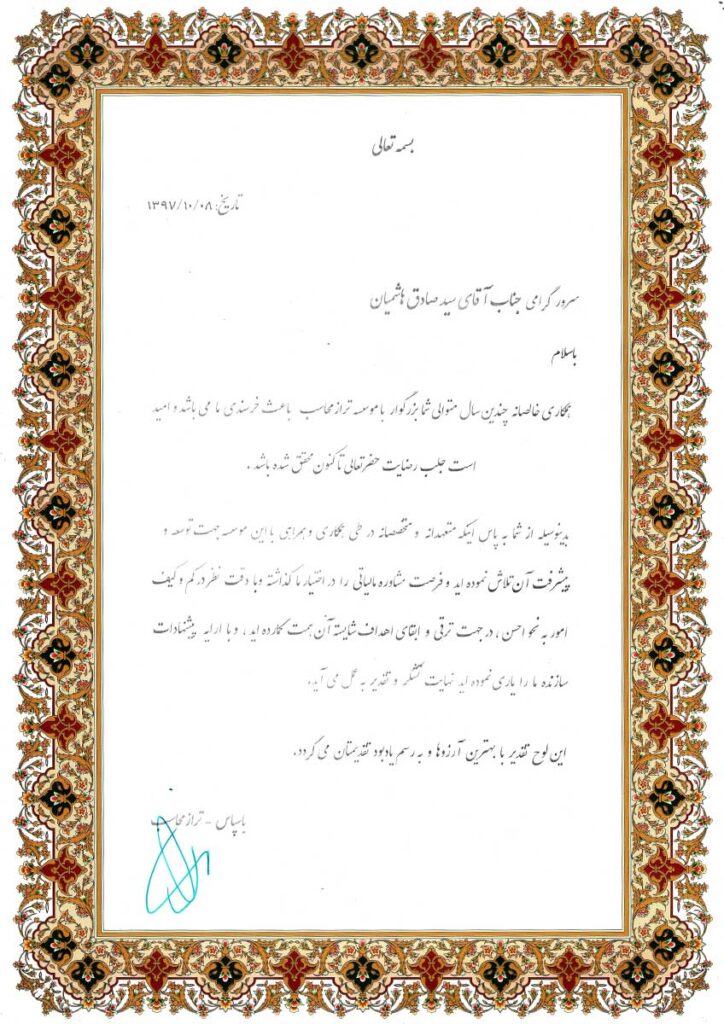 بسمه تعالی
تاریخ: ۱۳۹۷/۱۰/۰۸
سرور گرامی جناب آقای سید صادق هاشمیان
باسلام
همکاری خالصانه چندین سال متوالی شما بزرگوار با موسسه تراز محاسب باعث خرسندی ما می باشد و امید
است جلب رضایت حضرتعالی تا کنون محقق شده باشد .
بدینوسیله از شما به پاس اینکه متعهدانه و متخصصانه در طی همکاری و همراهی با این موسسه جهت توسعه و
پیشرفت آن تلاش نموده اید و فرصت مشاوره مالیاتی را در اختیار ما گذاشته و با دقت نظر در کم و کیف
امور به نحو احسن ، در جهت ترقی و ابقای اهداف شایسته آن همت گمارده اید ، و با ارایه پیشنهادات
سازنده ما را یاری نموده اید نهایت تشکر و تقدیر به عمل می آید.
این لوح تقدیر با بهترین آرزوها و به رسم یادبود تقدیمتان می گردد.
باسپاس - تراز محاسب